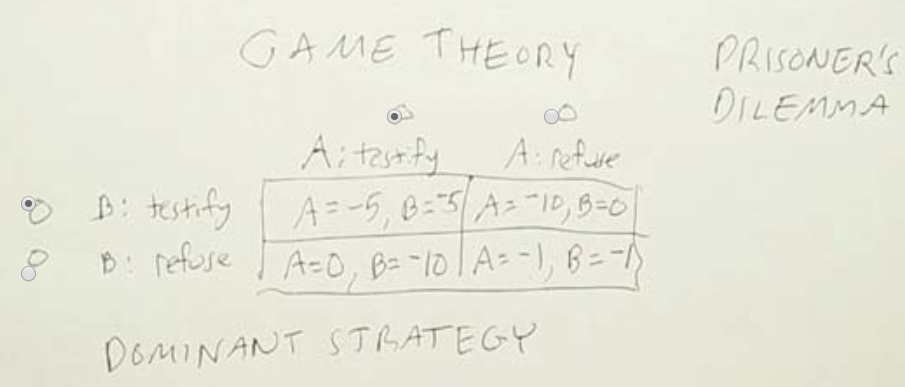 GAME THEORY
PRISONER'S
DILEMMA
A: testify A: refuse
B: testify A=-5, B=-5 A=-10, B=0
B: refuse A=0, B=-10 A=-1, B=-1
DOMINANT STRATEGY